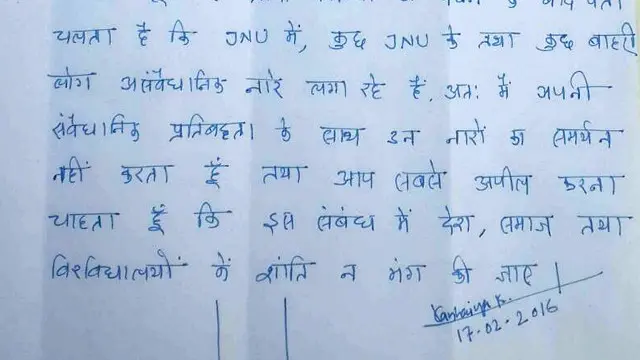 चलता है कि JNU में, कुछ JNU के तथा कुछ बाहरी
लोग असंवैधानिक नारे लगा रहे हैं. अतः मैं अपनी
संवैधानिक प्रतिबद्धता के साथ उन नारों का समर्थन
नहीं करता हूँ तथा आप सबसे अपील करना
चाहता हूँ कि इस संबंध में देश, समाज तथा
विश्वविद्यालयों में शांति न भंग की जाए।
Kanhaiya K.
17-02-2016